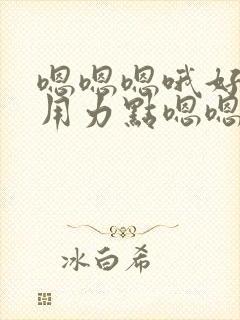 嗯嗯嗯哦好
用力點嗯嗯
冰白希